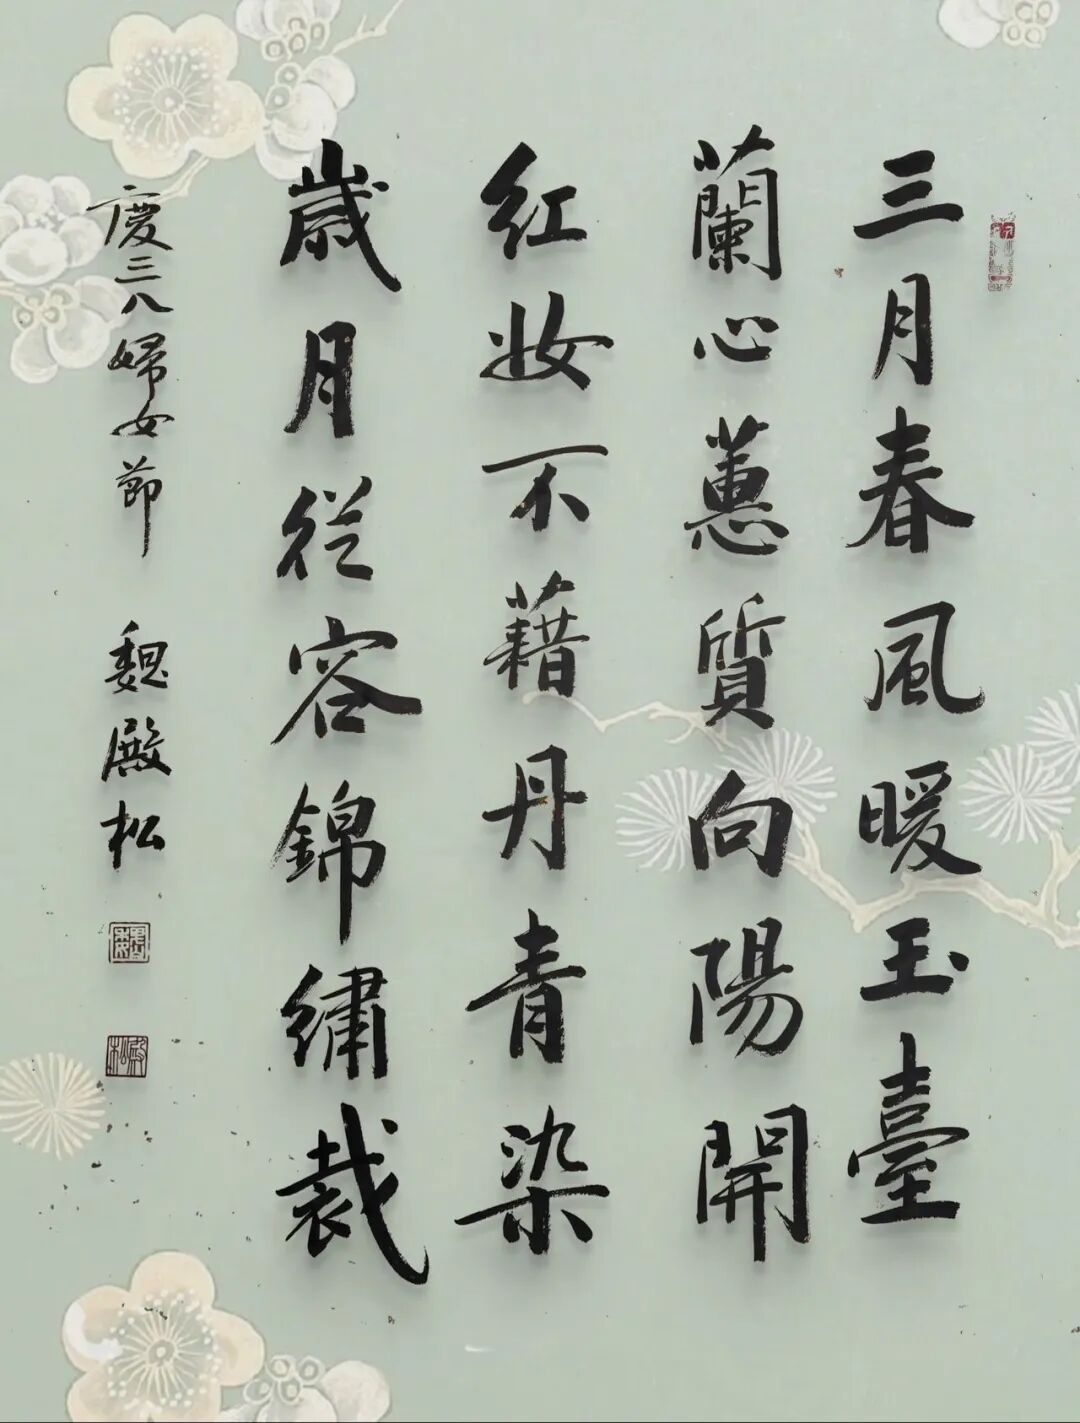 三月春風暖玉臺
蘭心蕙質向陽開
红妆不藉丹青染
歲月從容錦繡裁
慶三八婦女節
魏殿松